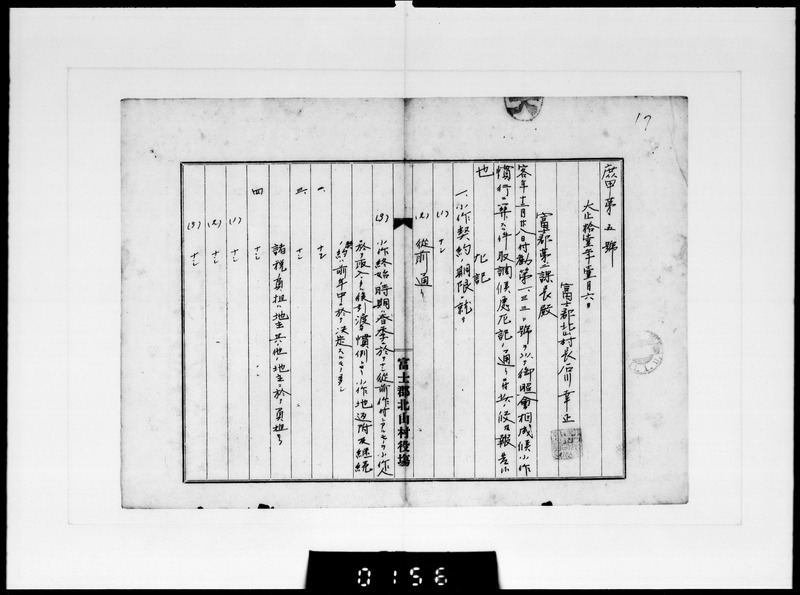 17
庶甲第五號
大正拾壹年壹月六日
富士郡北山村長石川幸正
富士郡第一課長殿
客年十二月廿八日付勧第一三三二號ヲ以テ御照會相成候小作
慣行ニ関スル件取調候處左記ノ通リ
也
左記
一、小作契約ノ期限ニ就テ
(1) ナシ
(2) 從前ノ通リ
(3) 小作終始ノ時期ハ春季ニ於テシ從前作付シタルモノハ小作人
於テ取入タル後引渡ス慣例ナリ小作地返附及継続
契約ハ前年中ニ於テ決定スルモノ多シ
富士郡北山村役塲
一、ナシ
三、ナシ
四 ナシ
諸税負担ハ地主其他ノ地主ニ於テ負担ス
(1) ナシ
(2) ナシ
(3) ナシ
0156